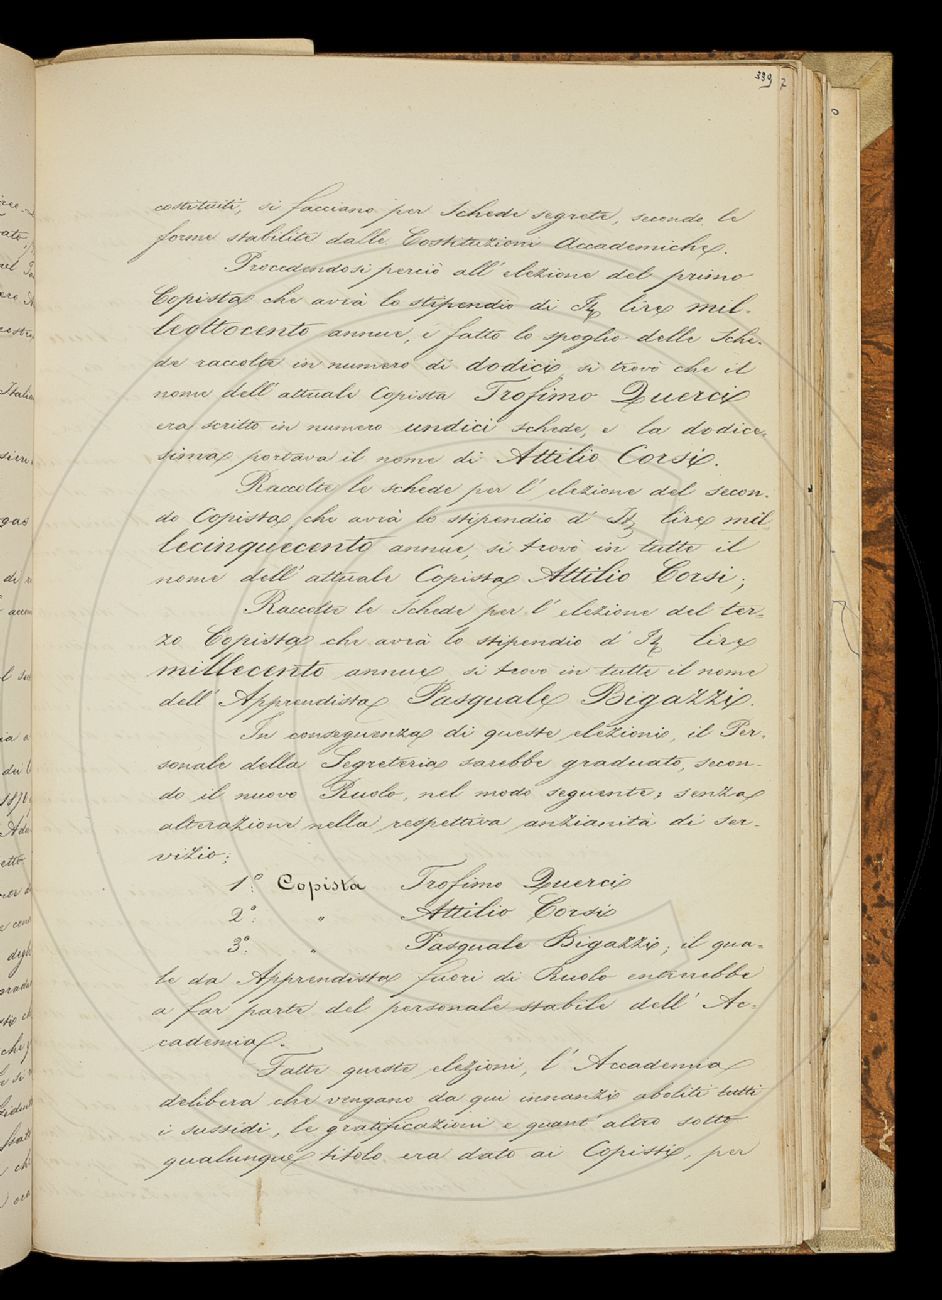 339 7
costituiti, si facciano per schede segrete, secondo le
forme stabilite dalle Costituzioni Accademiche.
Procedendosi perciò all' elezione del primo
Copista che avrà lo stipendio di lire mil-
leottocento annue, e fatto lo spoglio delle sche-
de raccolte in numero di dodici, si trovò che il
nome dell' attuale Copista Trofimo Querci
era scritto in numero undici schede, e la dodice-
sima portava il nome di Attilio Corsi.
Raccolte le schede per l' elezione del secon-
do Copista, che avrà lo stipendio d' lire mil-
lecinquecento annue, si trovò in tutte il
nome dell' attuale Copista Attilio Corsi;
Raccolte le schede per l' elezione del ter-
zo Copista che avrà lo stipendio d' lire
millecento annue, si trovò in tutte il nome
dell' Apprendista Pasquale Bigazzi.
In conseguenza di queste elezioni, il Per-
sonale della Segreteria sarebbe graduato, secon-
do il nuovo Ruolo, nel modo seguente; senza
alterazione nella respettiva anzianità di ser-
vizio;
1° Copista Trofimo Querci
2° " Attilio Corsi
3° " Pasquale Bigazzi; il qua-
le da Apprendista fuori di Ruolo entrerebbe
a far parte del personale stabile dell' Ac-
cademia.
Fatte queste elezioni, l' Accademia
delibera che vengano da qui innanzi aboliti tutti
i sussidi, le gratificazioni e quant' altro sotto
qualunque titolo era dato ai Copisti, per